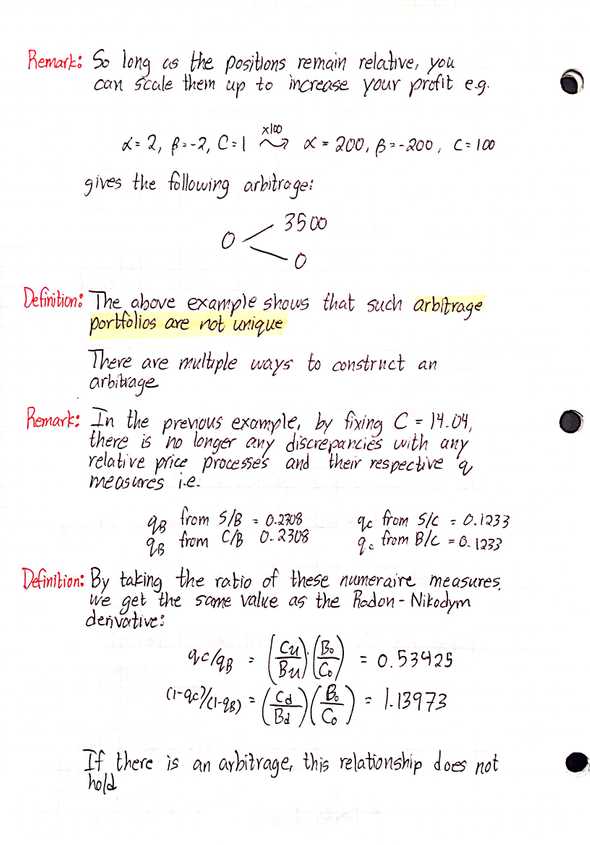 Remark: So long as the positions remain relative, you
can scale them up to increase your profit e.g.
x100
α = 2, β = -2, C = 1 ⤳ α = 200, β = -200, C = 100
gives the following arbitrage:
3500
0
0
Definition: The above example shows that such arbitrage
portfolios are not unique
There are multiple ways to construct an
arbitrage
Remark: In the previous example, by fixing C = 14.04,
there is no longer any discrepancies with any
relative price processes and their respective q
measures i.e.
qB from S/B = 0.2308 qc from S/C = 0.1233
qB from C/B 0.2308 qc from B/C = 0.1233
Definition: By taking the ratio of these numeraire measures,
we get the same value as the Radon-Nikodym
derivative:
qc/qB = (Cu/Bu)·(B0/C0) = 0.53425
(1-qc)/(1-qB) = (Cd/Bd)(B0/C0) = 1.13973
If there is an arbitrage, this relationship does not
hold